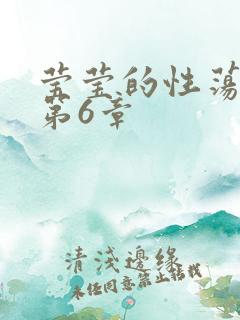 莹莹的性荡
第6章
清浅邊缘
未经同意禁止转载